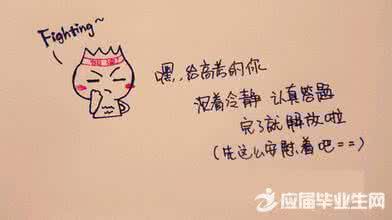 Fighting~
嘿,,给高考的你
沉着冷静 认真答题
完了就解放啦
(先这么安慰着吧==)
应届毕业生网